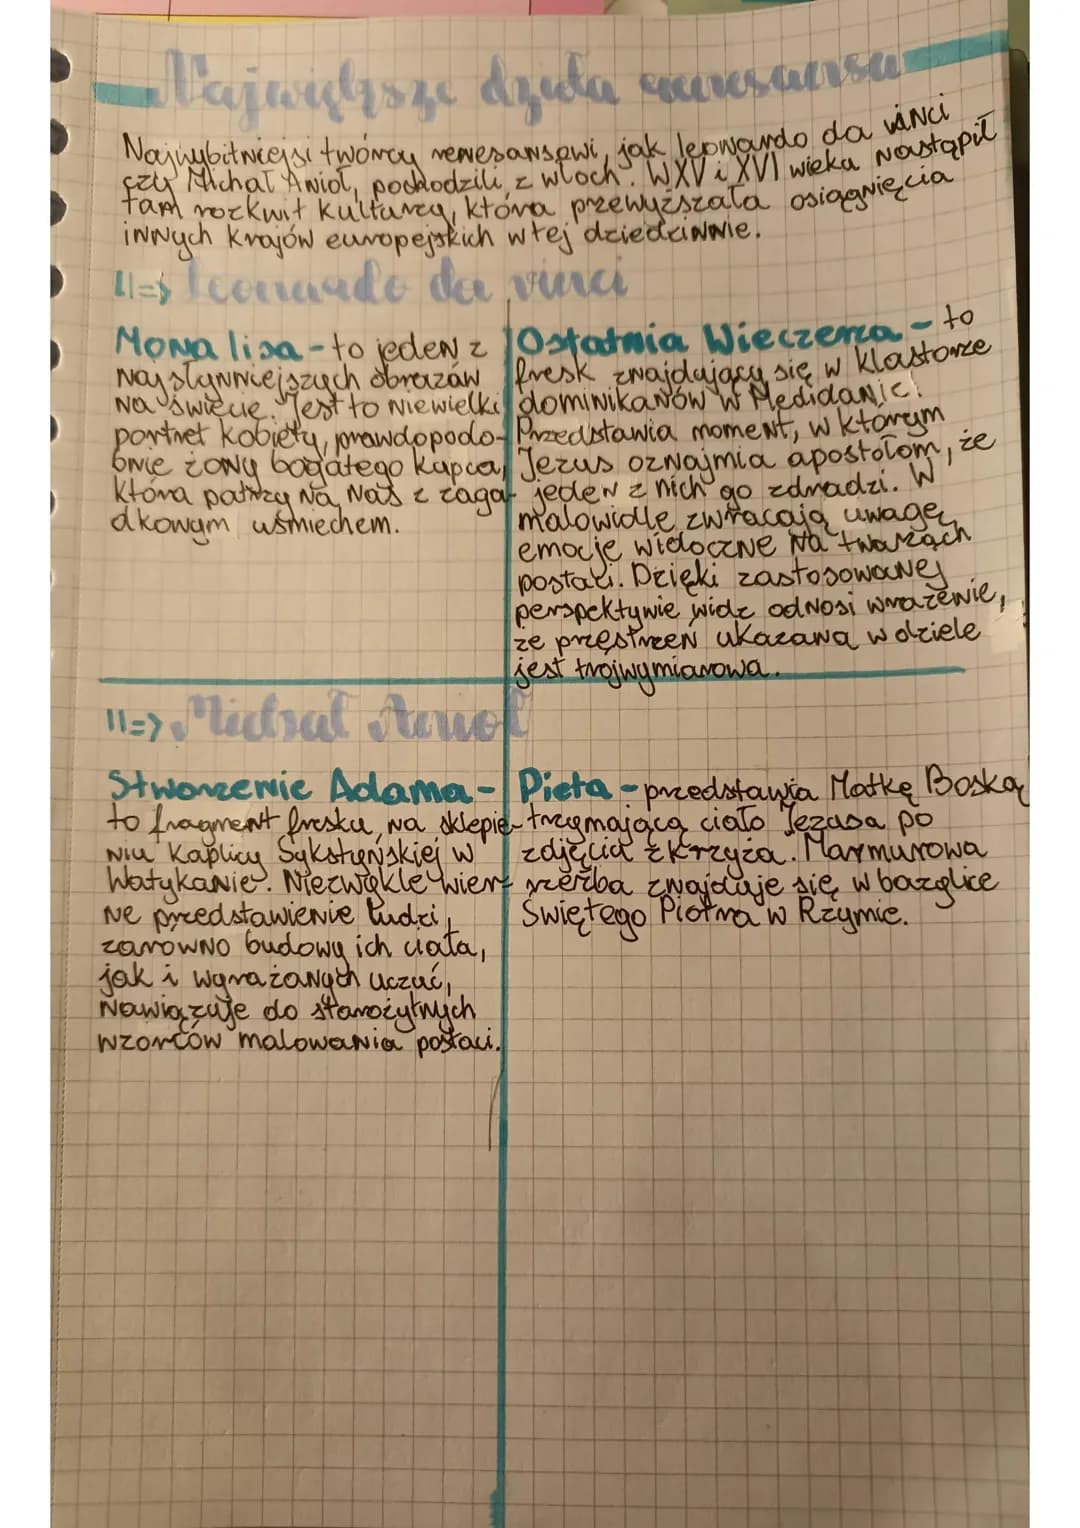 Największe dzieła renesansu
Najwybitniejsi twórcy renesansowi, jak leonardo da vinci
czy Michał Anioł, pochodzili z włoch. W XV i XVI wieku nastąpił
tam rozkwit kultury, która przewyższała osiągnięcia
innych krajów europejskich w tej dziedzinnie.
11=> leonardo da vinci
Mona lisa - to jeden z
najsłynniejszych obrazów
na świecie. Jest to niewielki
portret kobiety, prawdopodo-
bnie żony bogatego kupca,
która patrzy na nas z zaga-
dkowym uśmiechem.
Ostatnia Wieczerza - to
fresk znajdujący się w klastorze
dominikanów w Medidanie.
Przedstawia moment, w którym
Jezus oznajmia apostołom, że
jeden z nich go zdradzi. W
malowidle zwracają uwagę
emocje widoczne na twarzach
postaci. Dzięki zastosowanej
perspektywie widz odnosi wrażenie,
że przestrzeń ukazana w dziele
jest trójwymiarowa.
11=> Michał Anioł
Stworzenie Adama -
to fragment fresku na sklepie-
niu Kaplicy Sykstyńskiej w
Watykanie. Niezwykle wier-
ne przedstawienie ludzi,
zarówno budowy ich ciała,
jak i wyrażanych uczuć,
nawiązuje do starożytnych
wzorców malowania postaci.
Pieta - przedstawia Matkę Boską
trzymającą ciało Jezusa po
zdjęcia z krzyża. Marmurowa
rzeźba znajduje się w bazylice
Świętego Piotra w Rzymie.